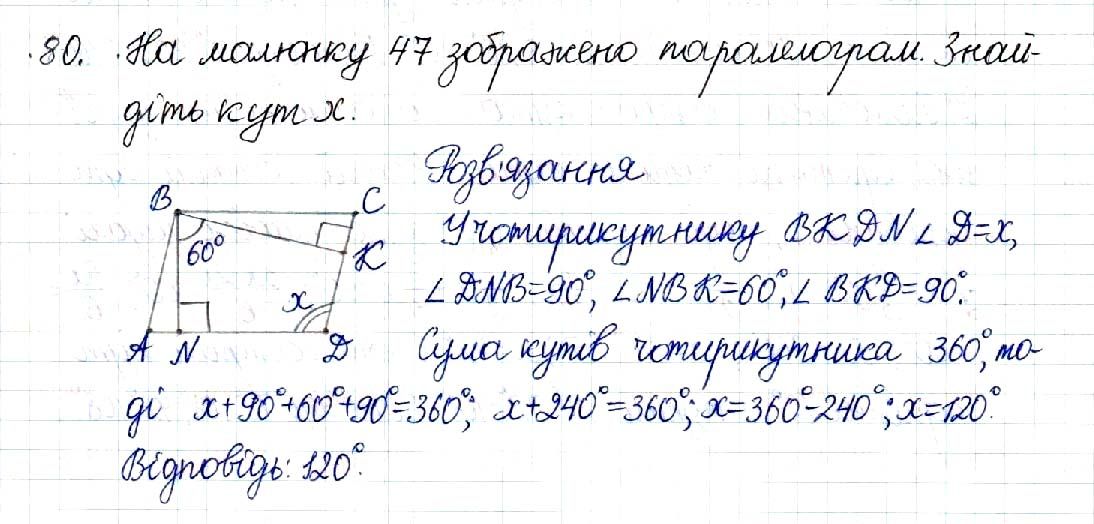 80. На малюнку 47 зображено паралелограм. Знай-
діть кут x.
Розв'язання
B
C
60°
K
x
A
N
D
У чотирикутнику BKDN ∠D=x,
∠DNB=90°, ∠NBK=60°, ∠BKD=90°.
Сума кутів чотирикутника 360°, то-
ді x+90°+60°+90°=360°; x+240°=360°; x=360°-240°; x=120°
Відповідь: 120°.